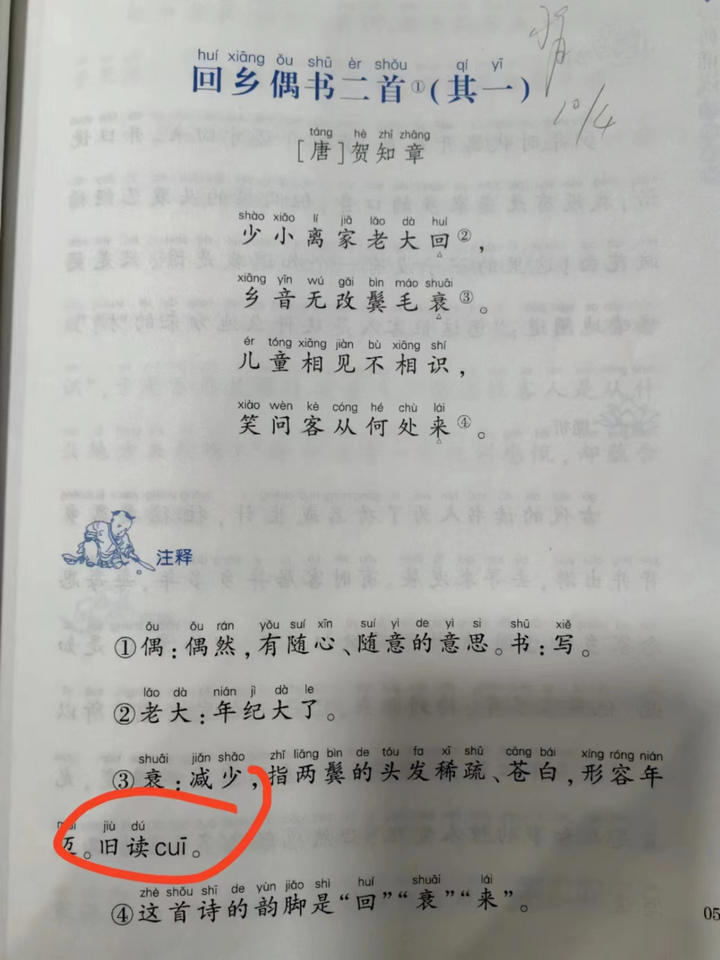 huí xiāng ǒu shū èr shǒu qí yī
回乡偶书二首①(其一)
táng hè zhī zhāng
[唐]贺知章
shào xiǎo lí jiā lǎo dà huí
少小离家老大回②，
xiāng yīn wú gǎi bìn máo shuāi
乡音无改鬓毛衰③。
ér tóng xiāng jiàn bù xiāng shí
儿童相见不相识，
xiào wèn kè cóng hé chù lái
笑问客从何处来④。
注释
ǒu ǒu rán yǒu suí xīn suí yì de yì si shū xiě
①偶：偶然，有随心、随意的意思。书：写。
lǎo dà nián jì dà le
②老大：年纪大了。
shuāi jiǎn shǎo zhǐ liǎng bìn de tóu fa xī shū cāng bái xíng róng nián
③衰：减少，指两鬓的头发稀疏、苍白，形容年
jiù dú
迈。旧读cuī。
zhè shǒu shī de yùn jiǎo shì huí shuāi lái
④这首诗的韵脚是“回”“衰”“来”。
10/4
05